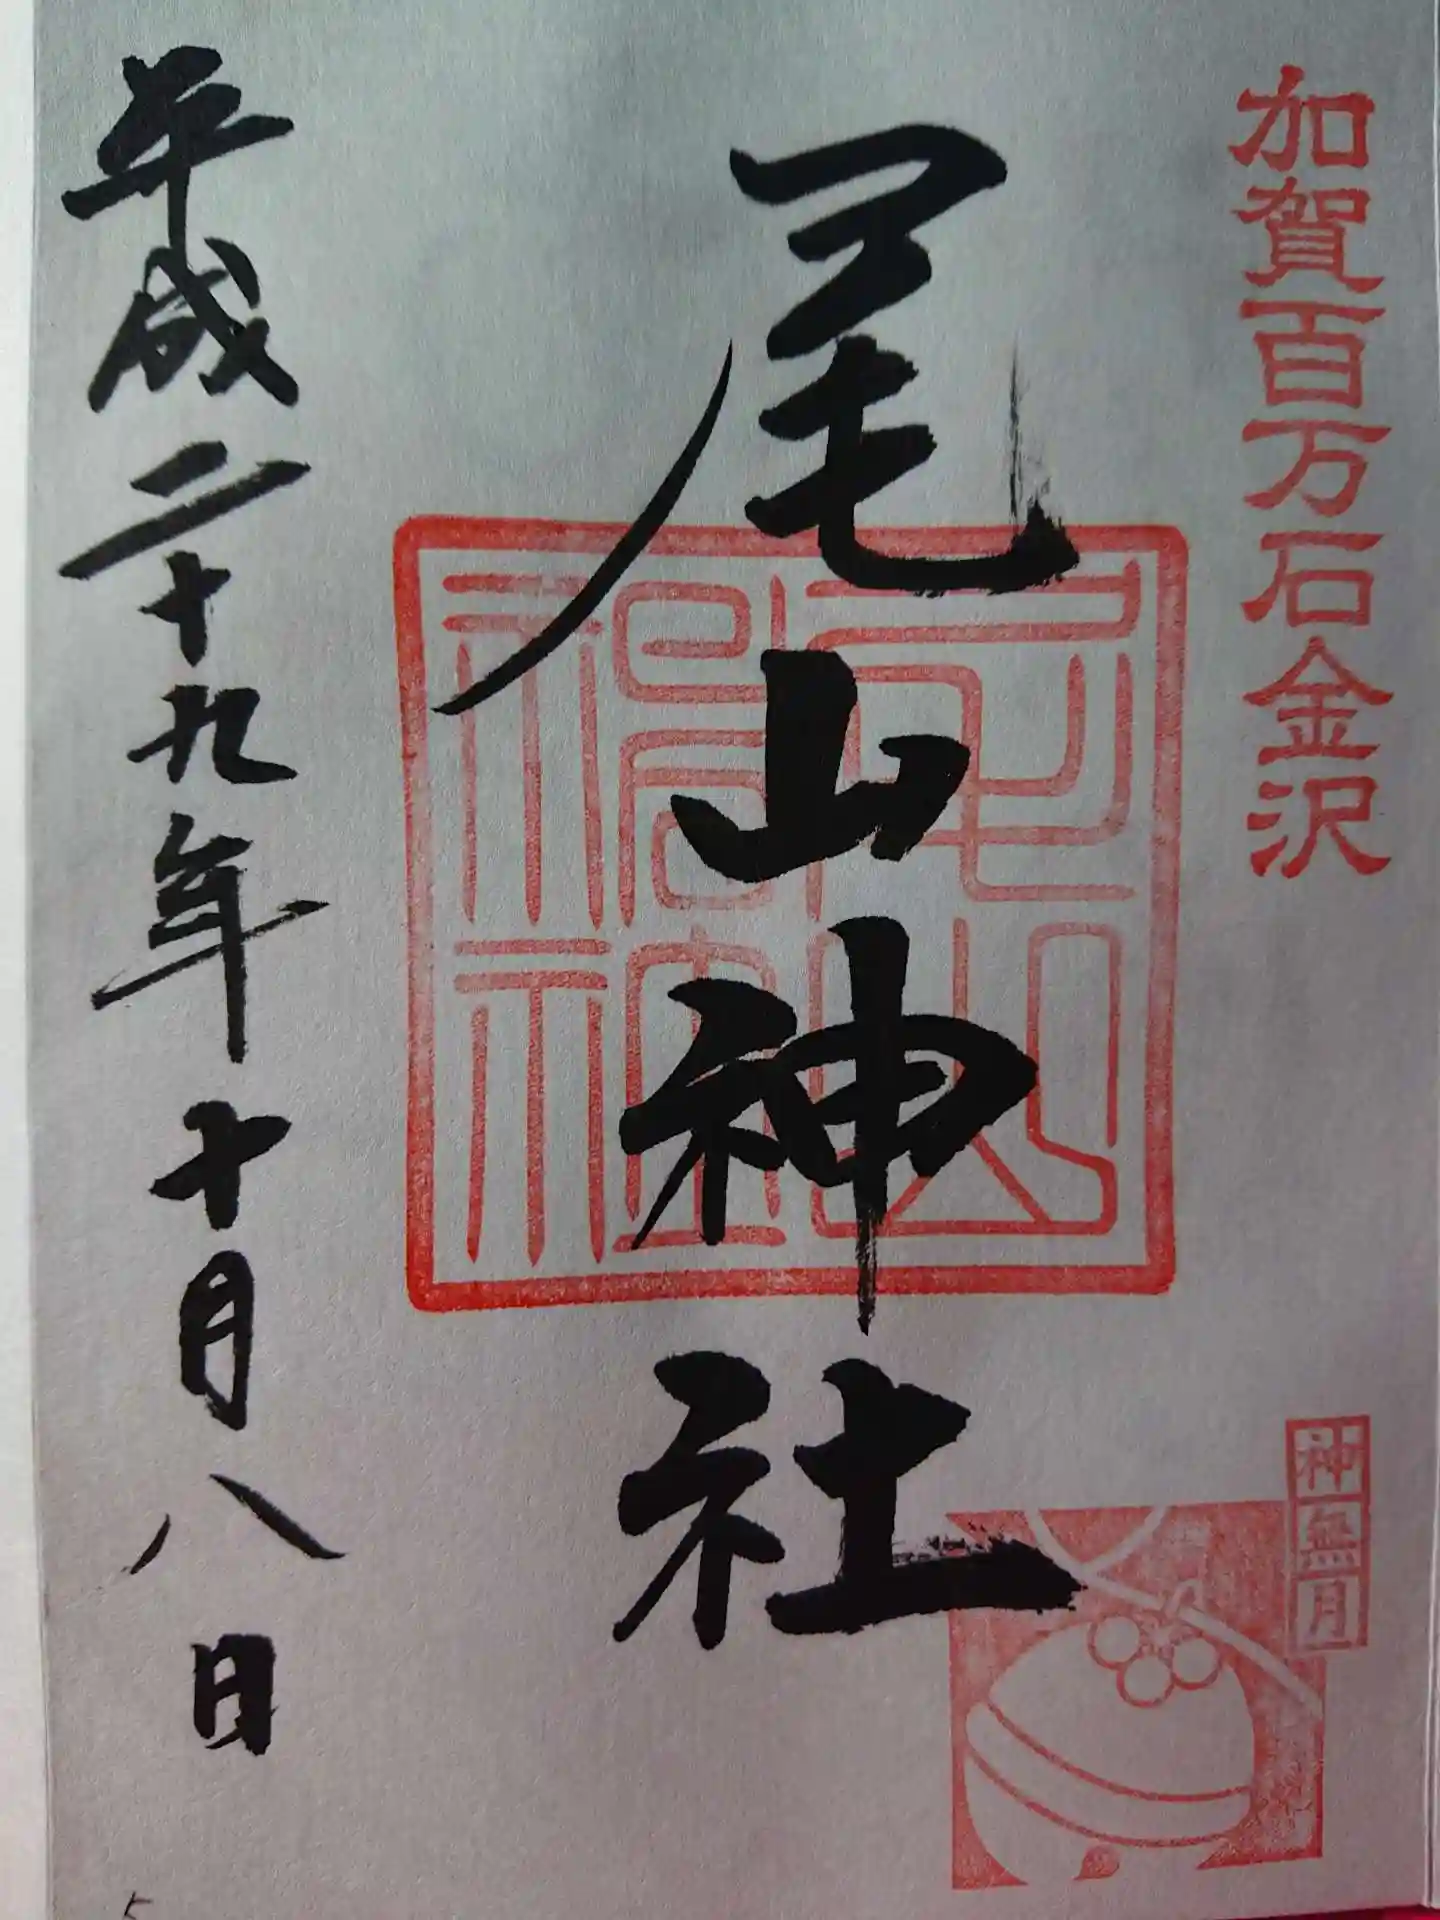 加賀百万石金沢
尾山神社
尾山神社
神無月
平成二十九年十月八日